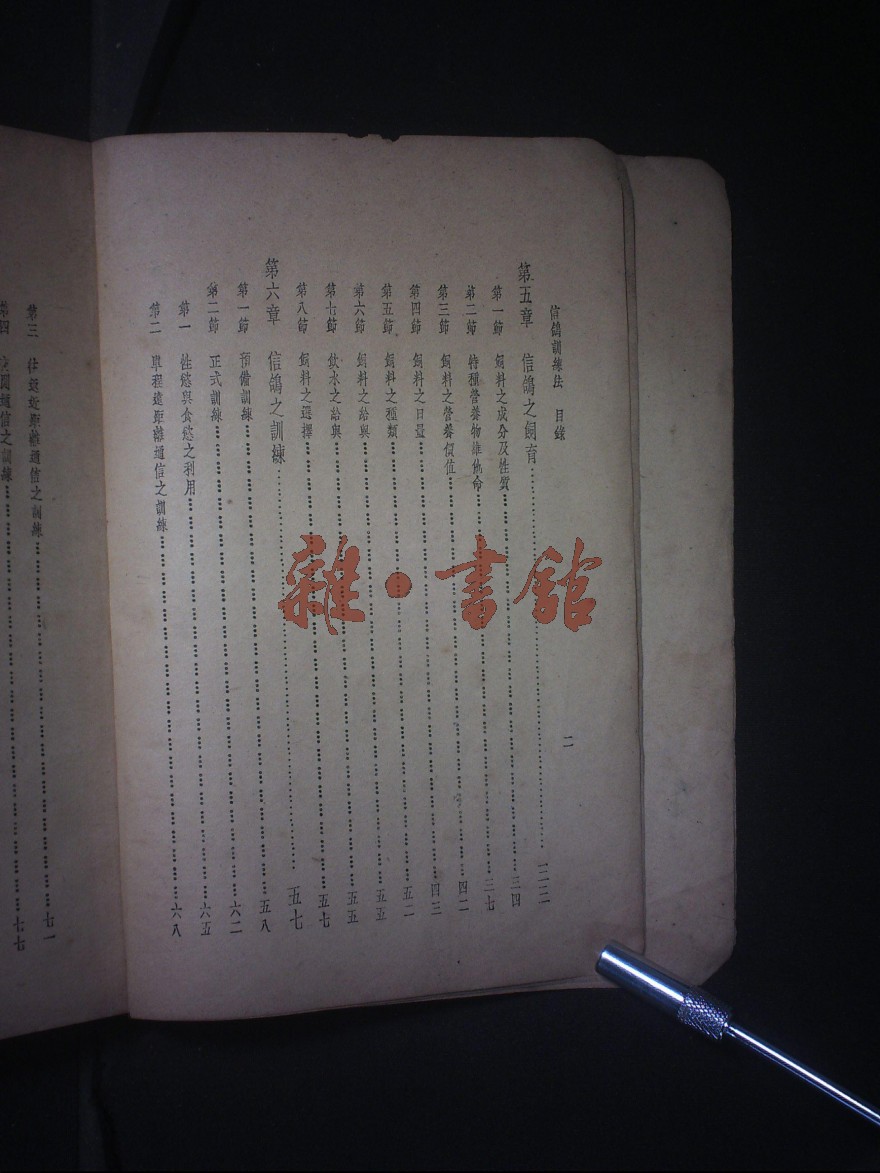 信鴿訓練法　目錄
二
第五章　信鴿之飼育……………三三
第一節　飼料之成分及性質……………三四
第二節　特種營養物維他命……………三七
第三節　飼料之營養價值……………四二
第四節　飼料之日量……………四三
第五節　飼料之種類……………五二
第六節　飼料之給與……………五五
第七節　飲水之給與……………五五
第八節　飼料之選擇……………五七
第六章　信鴿之訓練……………五七
第一節　預備訓練……………五八
第二節　正式訓練……………六二
第一　性慾與食慾之利用……………六五
第二　單程遠距離通信之訓練……………六八
第三　往返近距離通信之訓練……………七一
第四　夜間通信之訓練……………七七
雜·書館